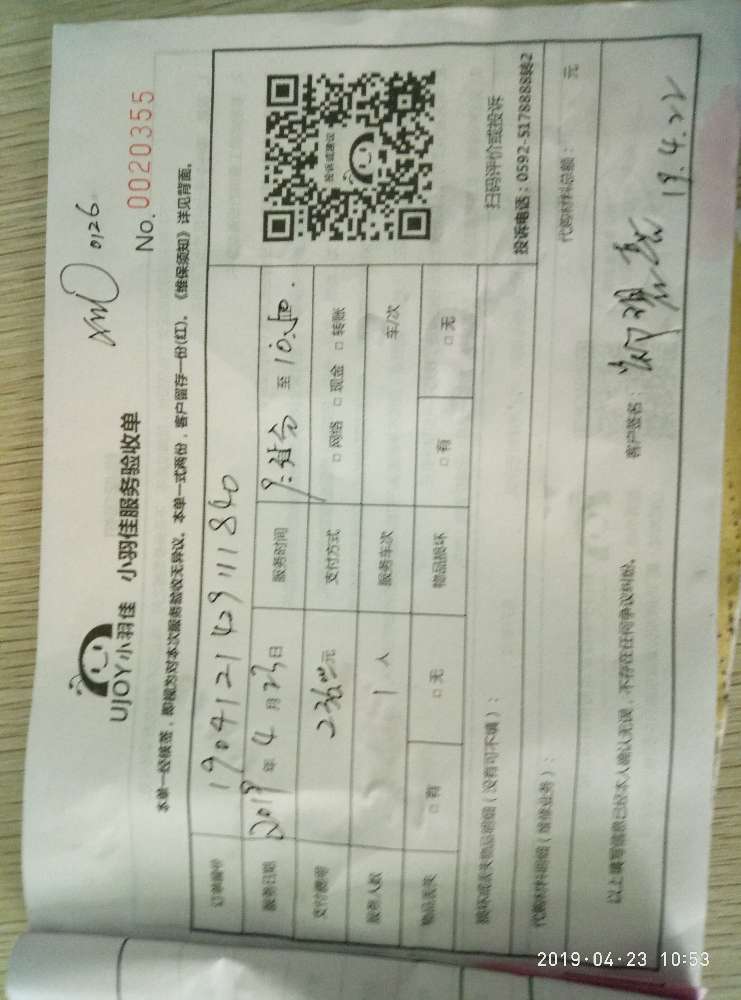 0126
UJOY小羽佳 小羽佳服务验收单
No. 0020355
本单一经核签，即视为对本次服务验收无异议。本单一式两份，客户留存一份(红)。《维保须知》详见背面。
订单编号 190412142911840
服务日期 2019 年 4 月 23 日 服务时间 至
支付费用 元 支付方式 □ 网络 □ 现金 □ 转账
服务人数 1 人 服务车次 车/次
物品丢失 □ 有 □ 无 物品损坏 □ 有 □ 无
投诉或建议
扫码评价或投诉
投诉电话：0592-5178888转2
损坏或丢失物品明细（没有可不填）：
代购材料明细（维修业务）： 代购材料总额： 元
以上填写信息已经本人确认无误，不存在任何争议纠纷。 客户签名：
2019·04·23 10:53